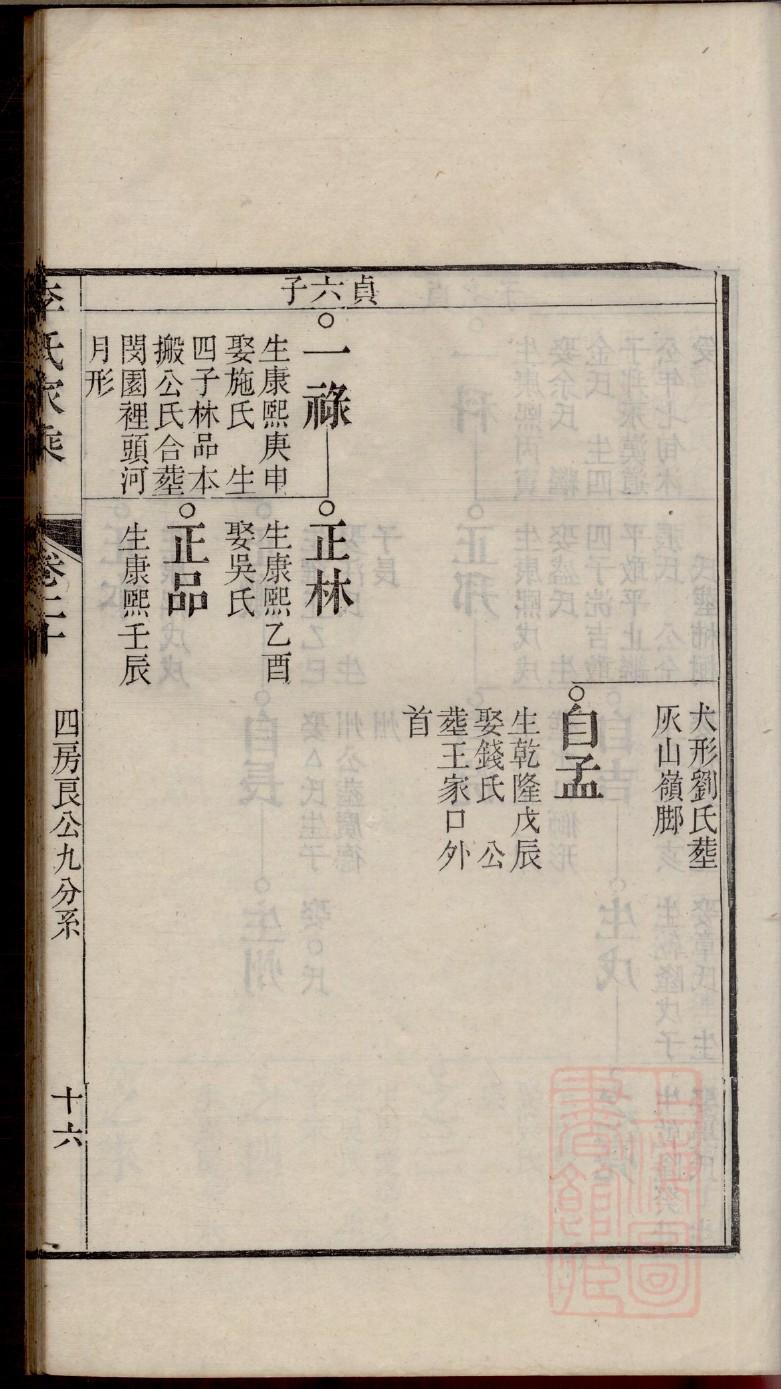 貞六子
犬形劉氏塟
灰山嶺脚
自孟
生乾隆戊辰
娶錢氏　公
塟王家口外
首
一祿
生康熙庚申
娶施氏　生
四子林品本
搬公氏合塟
閔園裡頭河
月形
正林
生康熙乙酉
娶吳氏
正品
生康熙壬辰
李氏家乘
卷二十
四房良公九分系
十六